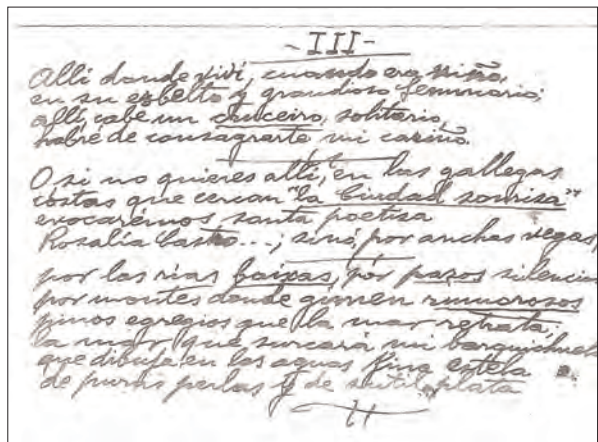 - III -
Allí donde viví, cuando era niño,
en su esbelto y grandioso Seminario;
allí, cabe un cruceiro, solitario,
habré de consagrarte mi cariño.
O si no quieres allí, en las gallegas
costas que cercan "la Ciudad sonrisa"
evocarémos santa poetisa
Rosalía Castro...; sinó, por anchas vegas,
por las rías baixas, por pazos silencio
por montes donde gimen rumorosos
pinos egregios que la mar retrata;
la mar que surcará mi barquichuelo
que dibuje en las aguas fina estela
de puras perlas y de sutil plata